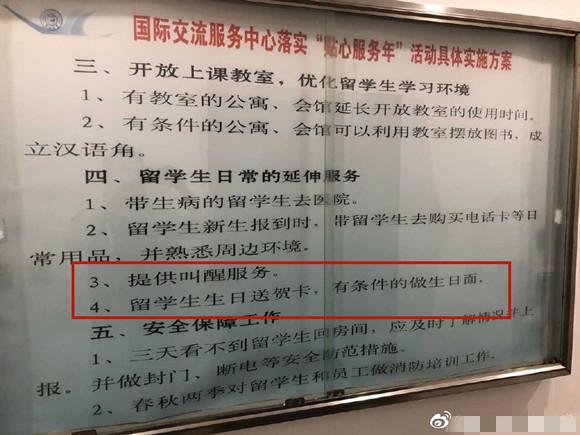 国际交流服务中心落实“贴心服务年”活动具体实施方案
三、开放上课教室，优化留学生学习环境
1、有教室的公寓、会馆延长开放教室的使用时间。
2、有条件的公寓、会馆可以利用教室摆放图书，成
立汉语角。
四、留学生日常的延伸服务
1、带生病的留学生去医院。
2、留学生新生报到时，带留学生去购买电话卡等日
常用品，并熟悉周边环境。
3、提供叫醒服务。
4、留学生生日送贺卡，有条件的做生日面。
五、安全保障工作
1、三天看不到留学生回房间，应及时了解情况并上
报。并做封门、断电等安全防范措施。
2、春秋两季对留学生和员工做消防培训工作。